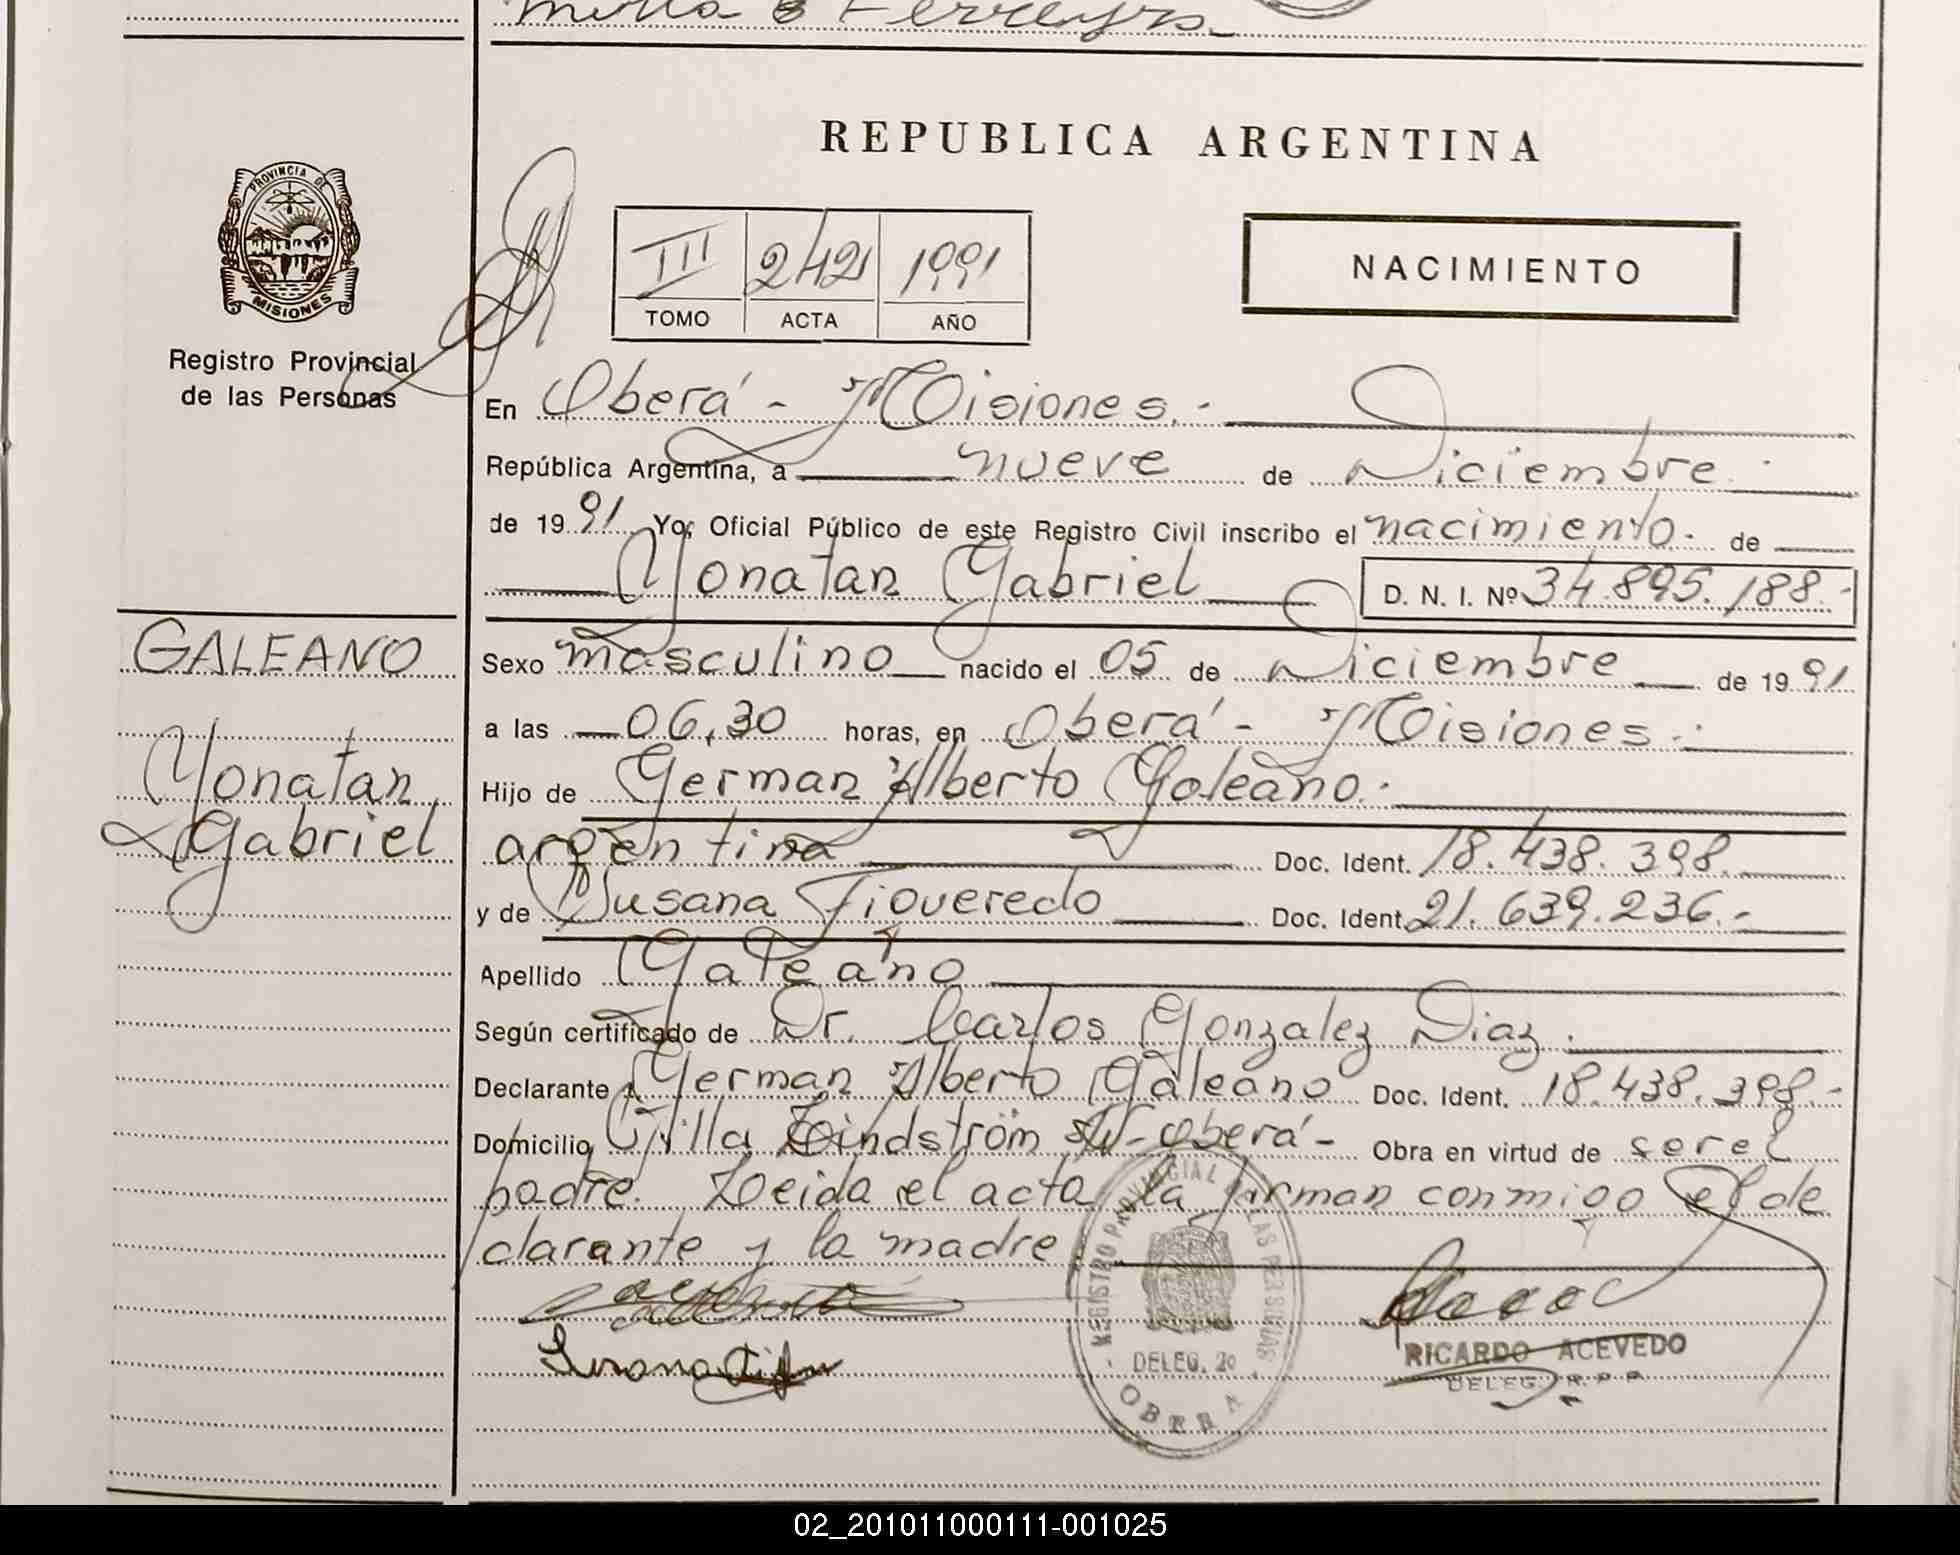 REPUBLICA ARGENTINA
PROVINCIA DE
MISIONES
Registro Provincial
de las Personas
III 242 1991
TOMO ACTA AÑO
NACIMIENTO
En Oberá - Misiones.-
República Argentina, a nueve de Diciembre.
de 1991 Yo, Oficial Público de este Registro Civil inscribo el nacimiento. de
Yonatan Gabriel D. N. I. Nº 34.895.188.-
GALEANO
Yonatan
Gabriel
Sexo masculino nacido el 05 de Diciembre de 1991
a las 06,30 horas, en Oberá - Misiones.-
Hijo de German Alberto Galeano.-
argentina Doc. Ident. 18.438.398.
y de Susana Figueredo Doc. Ident. 21.639.236.-
Apellido Galeano
Según certificado de Dr. Carlos Gonzalez Diaz.
Declarante German Alberto Galeano Doc. Ident. 18.438.398.-
Domicilio Villa Lindström S/N-Oberá- Obra en virtud de ser el
padre. Leida el acta la firman conmigo el de
clarante y la madre.
REGISTRO PROVINCIAL DE LAS PERSONAS
DELEG. 20
OBERA
RICARDO ACEVEDO
DELEG. R.P.P.
02_201011000111-001025